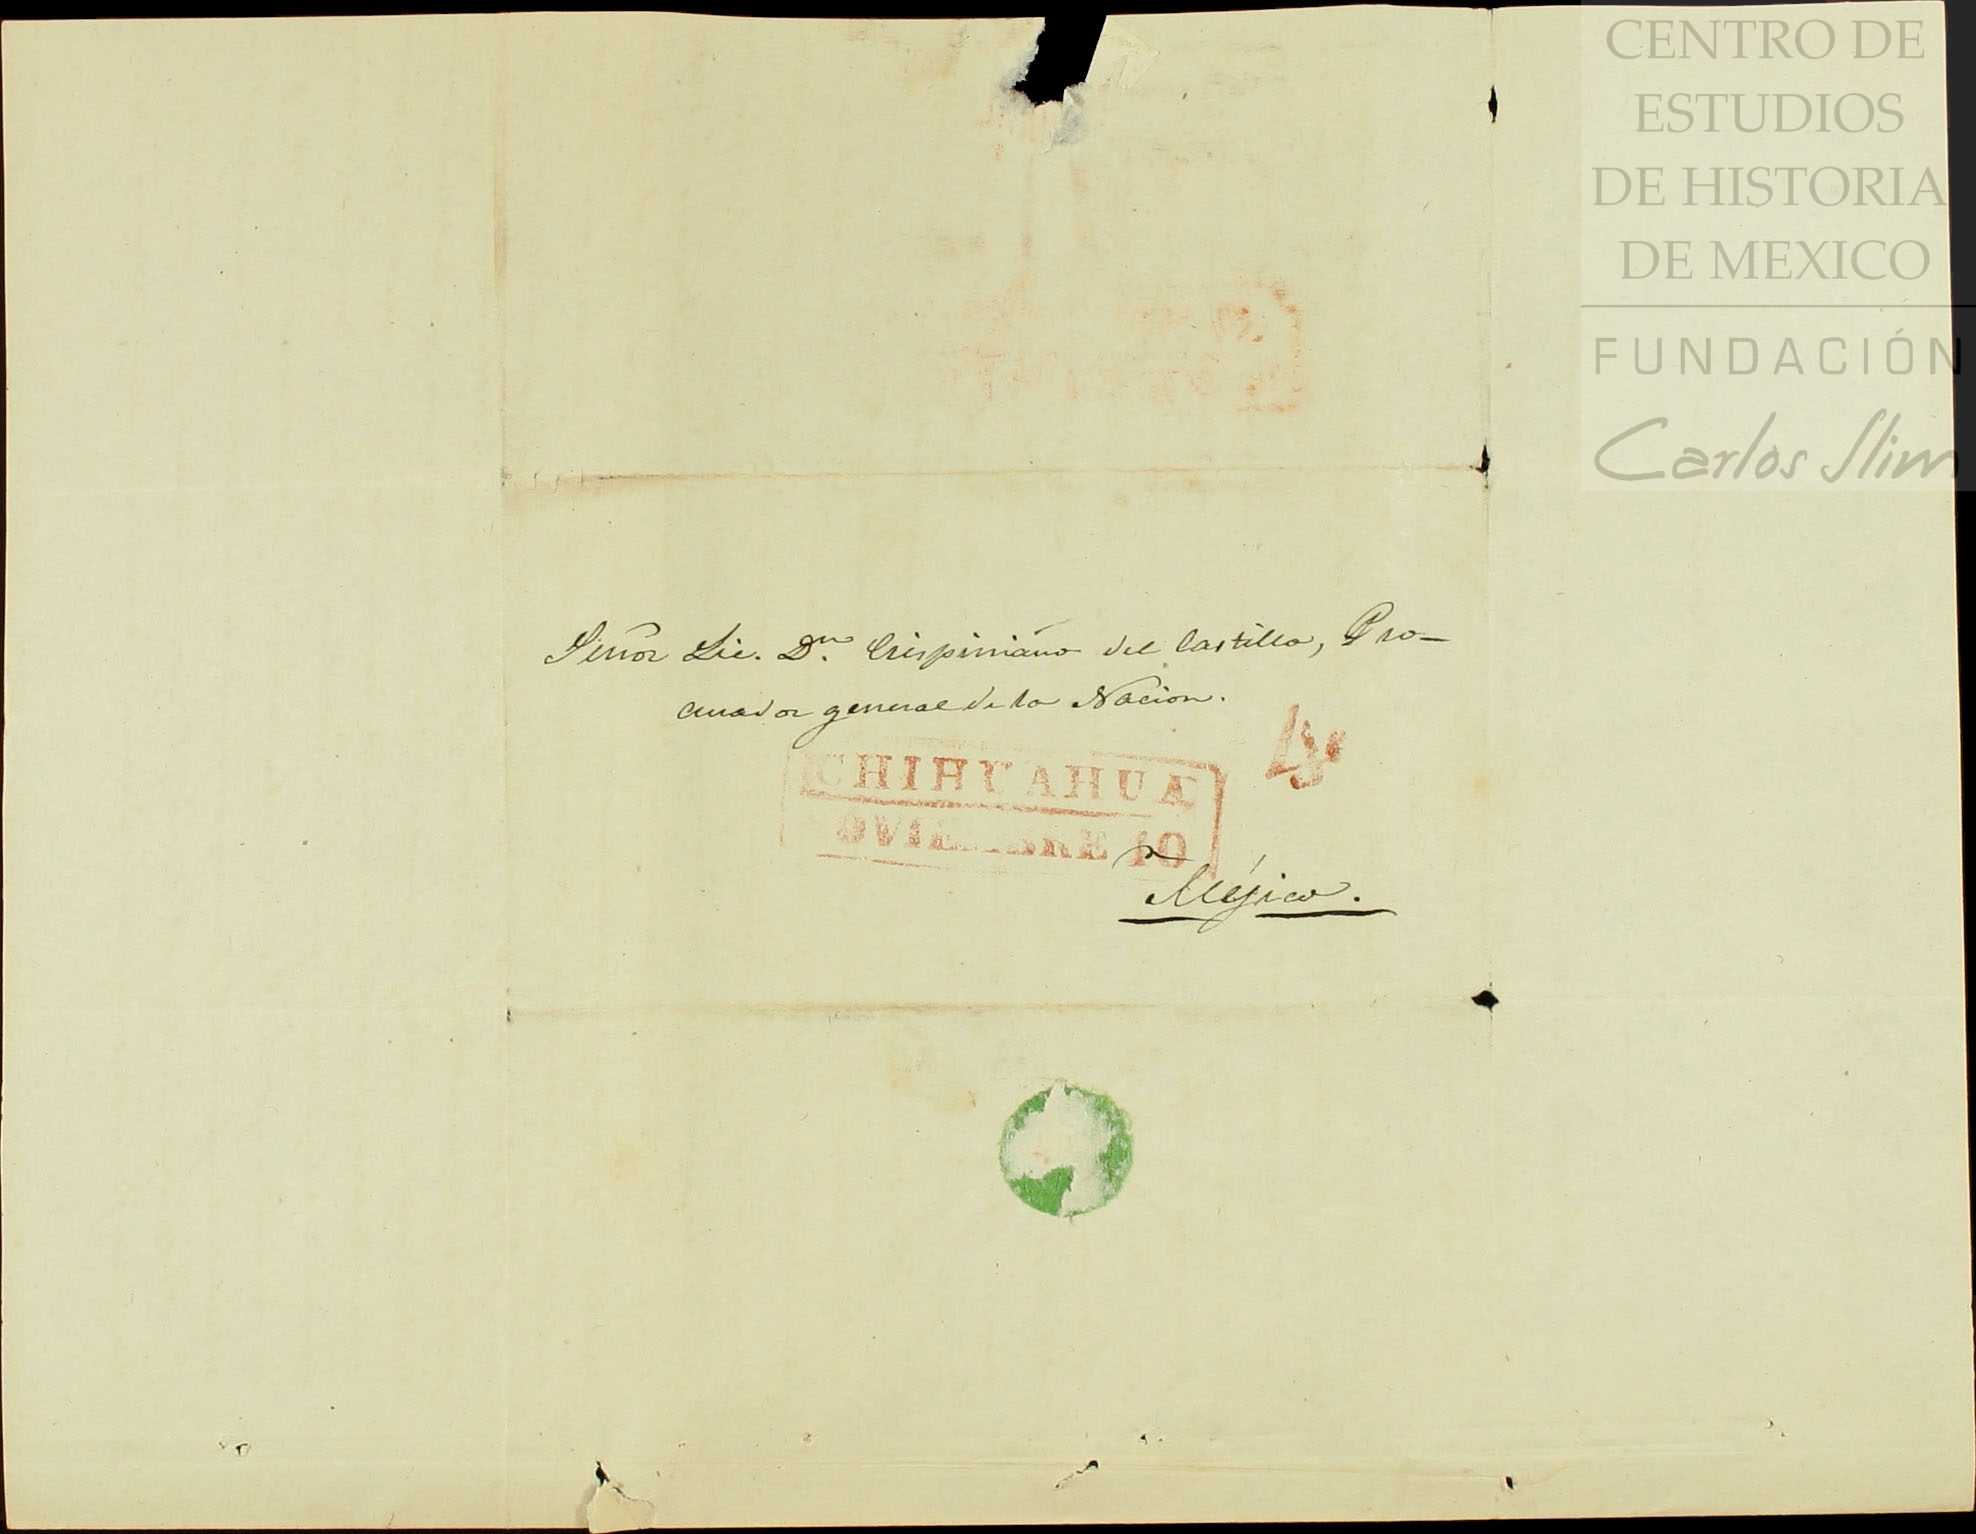 CENTRO DE
ESTUDIOS
DE HISTORIA
DE MEXICO
FUNDACIÓN
Carlos Slim
Señor Lic. Dn. Crispiniano del Castillo, Pro-
curador general de la Nacion.
CHIHUAHUA
OVIEMBRE 10
4
Méjico.